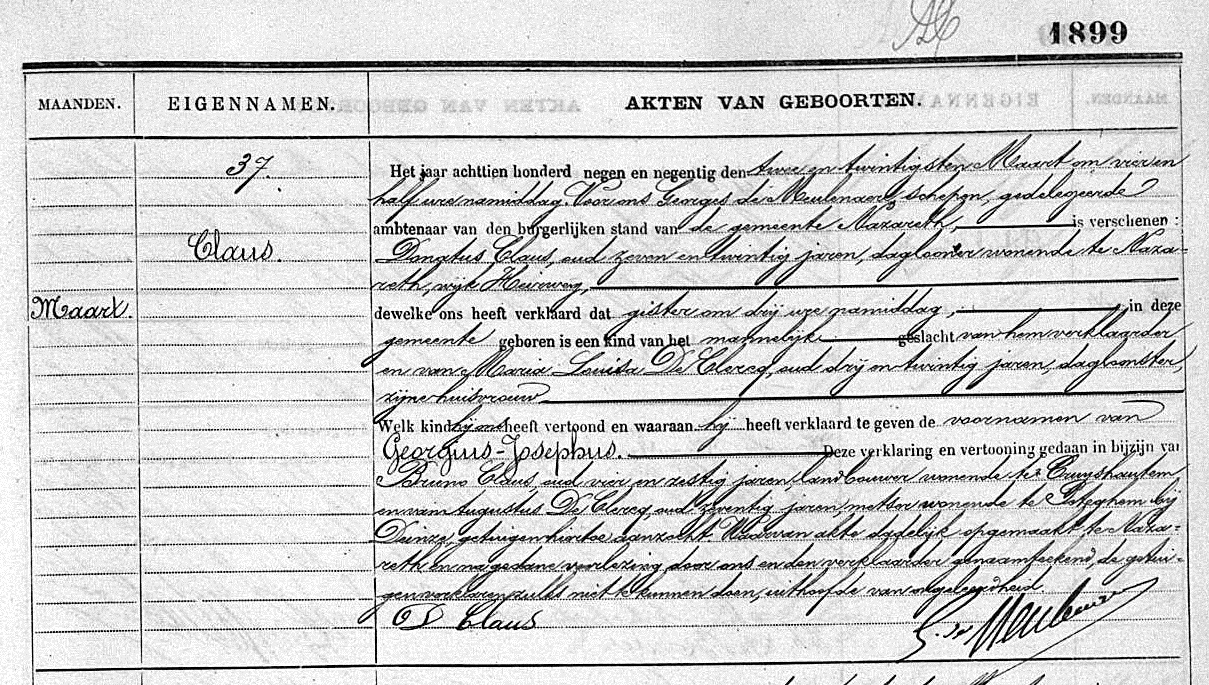 1899
MAANDEN. EIGENNAMEN. AKTEN VAN GEBOORTEN.
37.
Claus.
Maart.
Het jaar achttien honderd negen en negentig den twee en twintigsten Maart om vier en
half ure namiddag. Voor ons Georges de Meulenaere, schepen, gedelegeerde
ambtenaar van den burgerlijken stand van de gemeente Nazareth, is verschenen :
Donatus Claus, oud zeven en twintig jaren, daglooner wonende te Naza-
reth, wijk Heirweg,
dewelke ons heeft verklaard dat gister om drij ure namiddag, in deze
gemeente geboren is een kind van het mannelijk geslacht van hem verklaarder
en van Maria Louisa De Clercq, oud drij en twintig jaren, dagloonster,
zijne huisvrouw
Welk kind hij ons heeft vertoond en waaraan hij heeft verklaard te geven de voornamen van
Georgius-Josephus. Deze verklaring en vertooning gedaan in bijzijn van
Bruno Claus, oud vier en zestig jaren, landbouwer wonende te Cruyshautem
en van Augustus De Clercq, oud zeventig jaren, metser wonende te Peteghem bij
Deinze, getuigen hiertoe aanzocht. Waarvan akte dadelijk opgemaakt te Naza-
reth en na gedane voorlezing door ons en den verklaarder genaamteekend, de getui-
gen verklaren zulks niet te kunnen doen, uit hoofde van ongeleerdheid.
D Claus G. de Meulenaere